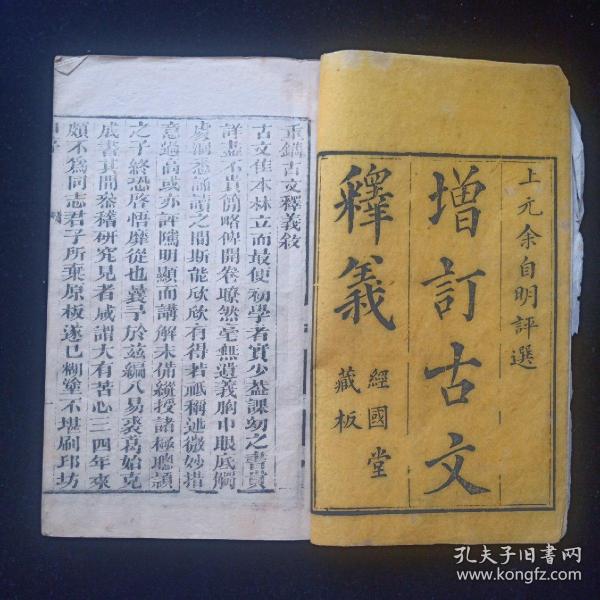 上元余自明評選
增訂古文
釋義
經國堂
藏板
重鐫古文釋義敘
古文隹本林立而最便初學者實少葢課幼之書貴
詳盡不貴簡略俾開卷瞭然毫無遺義胸巾眼底觸
處洞悉誦讀之間斯能欣欣有得若祇稱述微妙措
意過高或亦評隲明顯而講解未備縱授諸極聰頴
之子終恐啓悟靡從也曩予於兹編八易裘葛始克
成書其間叅稽研究見者咸謂大有苦心三四年來
頗不爲同志君子所棄原板遂已糊塗不堪刷印坊
孔夫子旧书网
www.kongfz.com